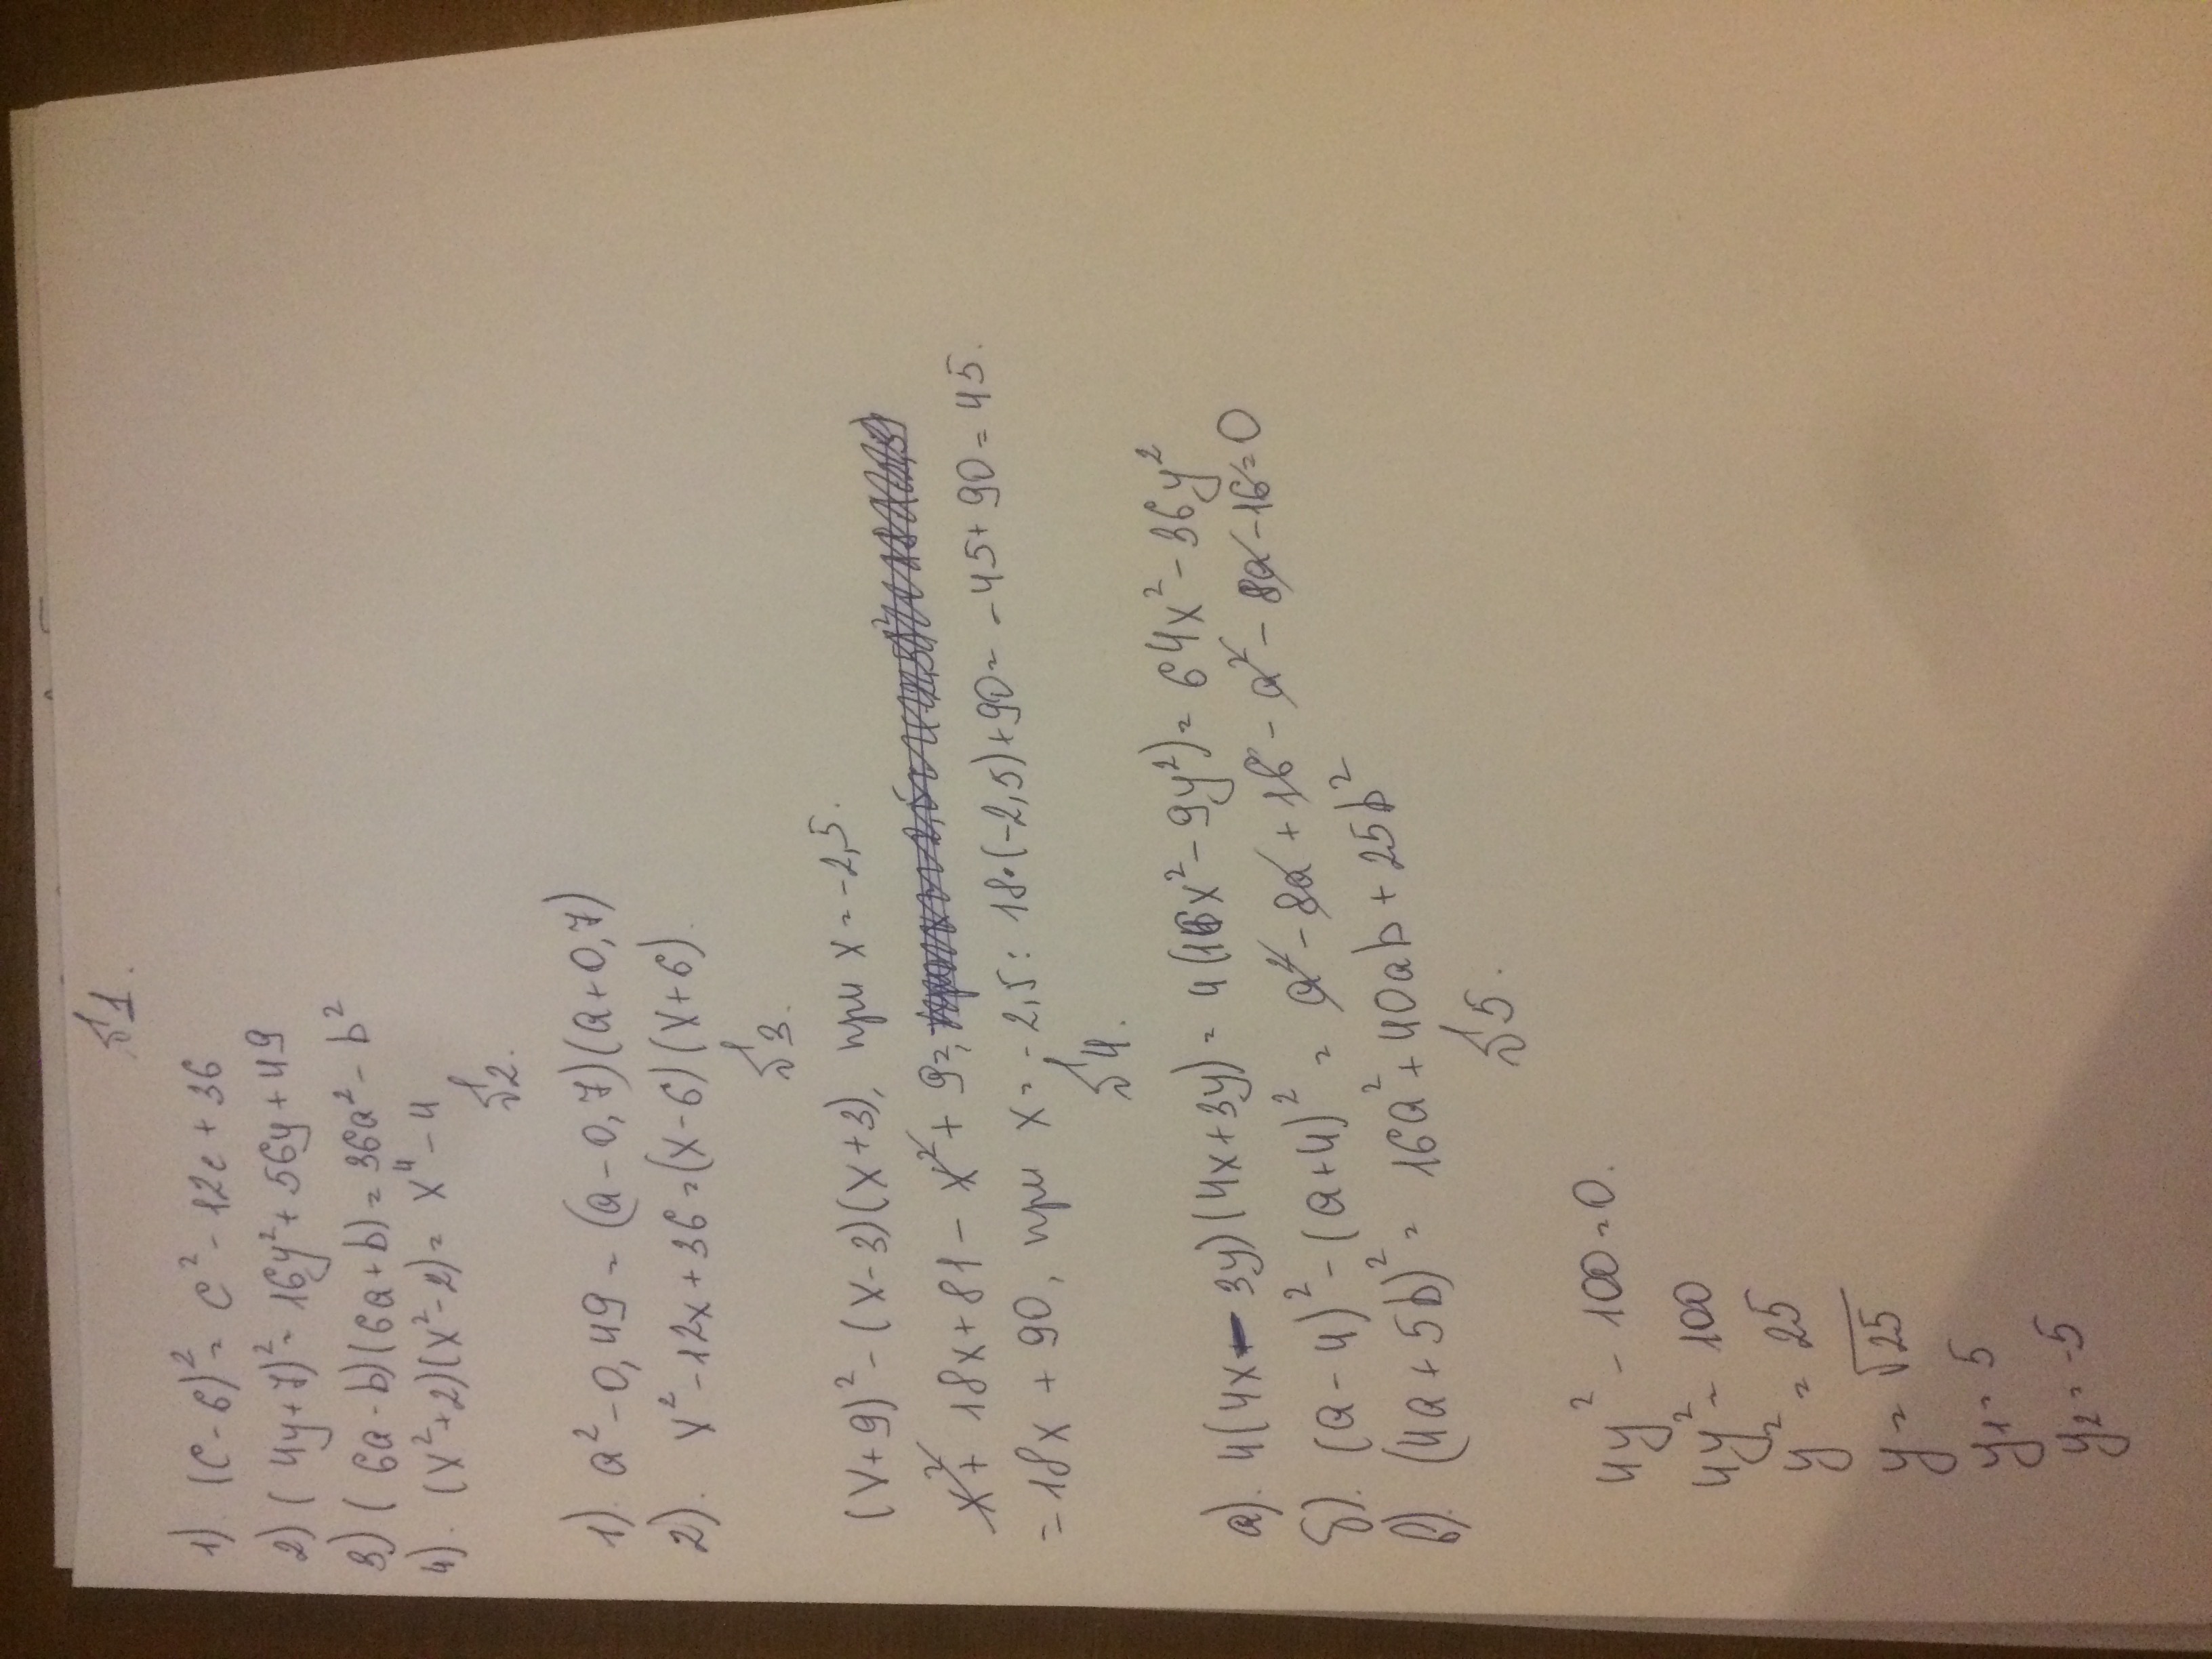 №1.
1). (c-6)² = c² - 12c + 36
2) (4y+7)² = 16y² + 56y + 49
3) (6a-b)(6a+b) = 36a² - b²
4). (x²+2)(x²-2) = x⁴ - 4
№2.
1). a² - 0,49 = (a - 0,7)(a+0,7)
2). x² - 12x + 36 = (x-6)(x+6).
№3.
(x+9)² - (x-3)(x+3), при x = -2,5.
x² + 18x + 81 - x² + 9 =
= 18x + 90, при x = -2,5: 18·(-2,5)+90 = -45+90 = 45.
№4.
а). 4(4x - 3y)(4x+3y) = 4(16x² - 9y²) = 64x² - 36y²
б). (a-4)² - (a+4)² = a² - 8a + 16 - a² - 8a - 16 = 0
в). (4a+5b)² = 16a² + 40ab + 25b²
№5.
4y² - 100 = 0.
4y² = 100
y² = 25
y = √25
y₁ = 5
y₂ = -5